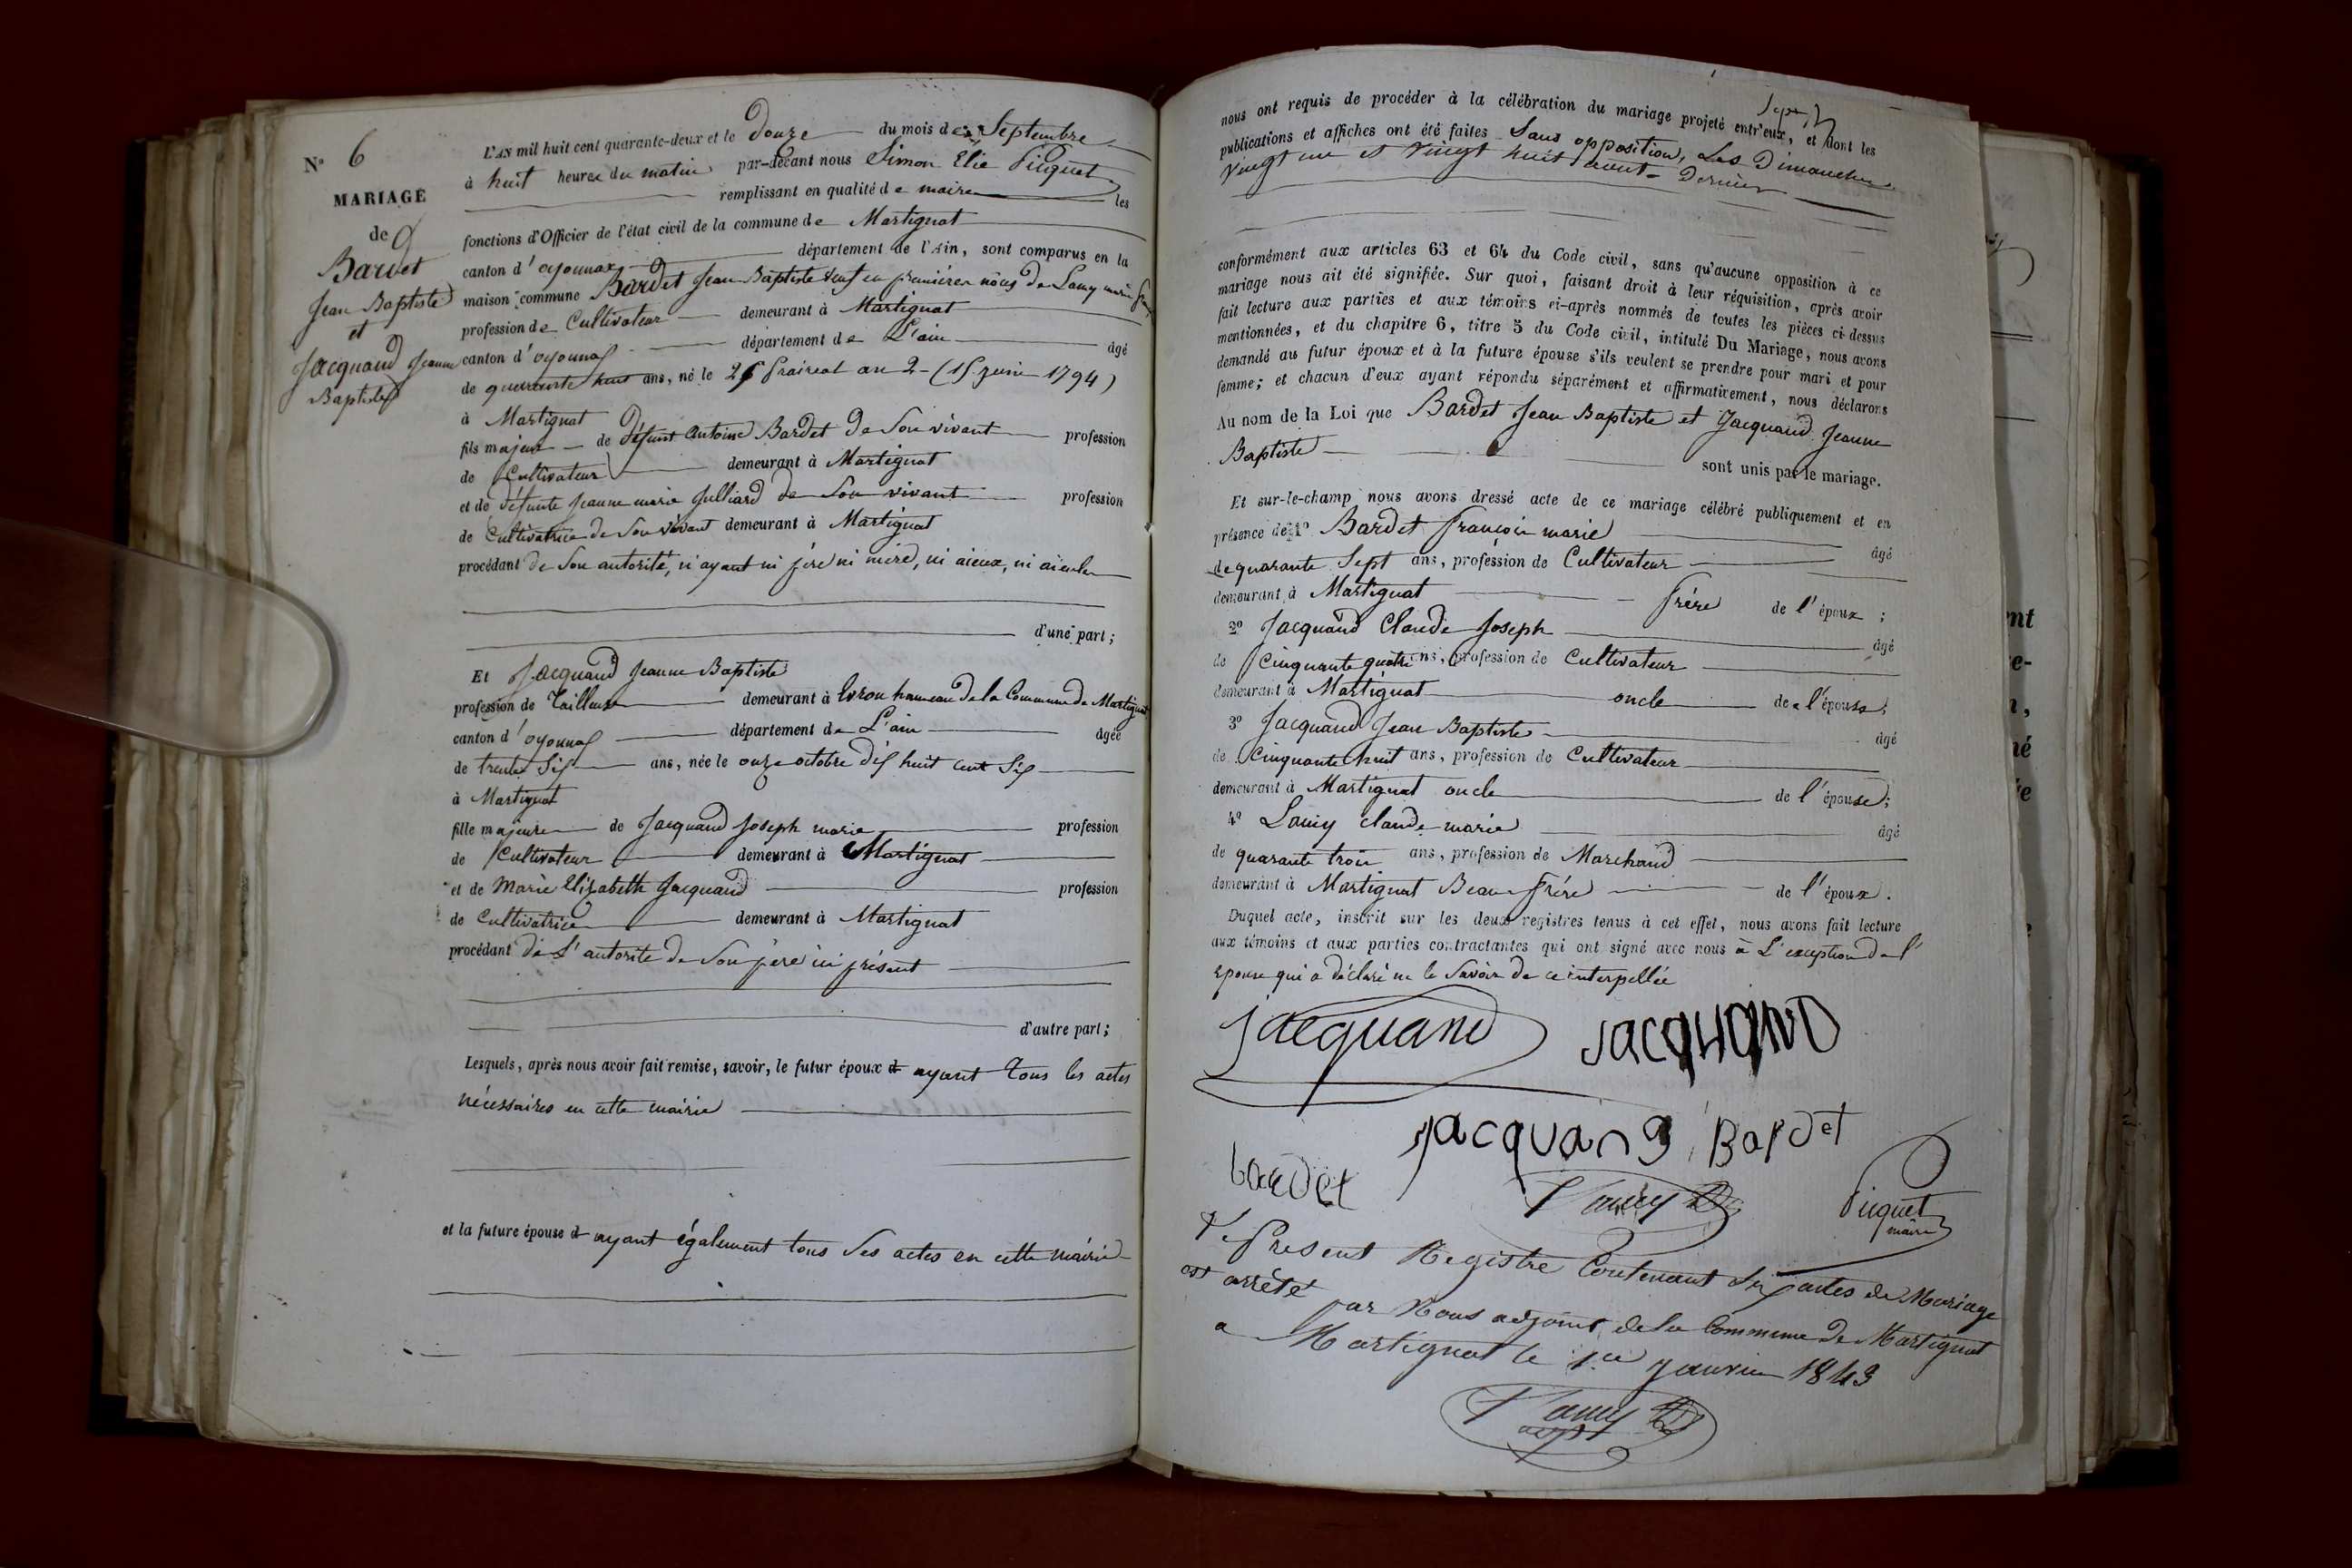 N° 6
MARIAGE
de
Bardet
Jean Baptiste
et
Jacquand Jeanne
Baptiste
L'AN mil huit cent quarante-deux et le douze du mois de Septembre
à huit heures du matin par-devant nous Simon Elie Picquet
remplissant en qualité de maire les
fonctions d'Officier de l'état civil de la commune de Martignat
canton d'oyonnax département de l'Ain, sont comparus en la
maison commune Bardet Jean Baptiste veuf en premières nôces de Lamy marie
profession de Cultivateur demeurant à Martignat
canton d'oyonnax département de L'ain âgé
de quarante huit ans, né le 26 Praireal an 2 (15 juin 1794)
à Martignat
fils majeur de Défunt Antoine Bardet de Son vivant profession
de Cultivateur demeurant à Martignat
et de défunte Jeanne marie Julliard de Son vivant profession
de Cultivatrice de Son vivant demeurant à Martignat
procédant de Son autorité, n'ayant ni père ni mère, ni aieux, ni aieules
d'une part;
Et Jacquand Jeanne Baptiste
profession de Tailleuse demeurant à Evron hameau de la Commune de Martignat
canton d'oyonnax département de L'ain âgée
de trente Six ans, née le onze octobre dix huit cent Six
à Martignat
fille majeure de Jacquand Joseph marie profession
de Cultivateur demeurant à Martignat
et de Marie Elizabeth Jacquand profession
de Cultivatrice demeurant à Martignat
procédant de L'autorité de Son père ici présent
d'autre part;
Lesquels, après nous avoir fait remise, savoir, le futur époux d ayant tous les actes
nécessaires en cette mairie
et la future épouse d ayant également tous Ses actes en cette mairie
nous ont requis de procéder à la célébration du mariage projeté entr'eux, et dont les
publications et affiches ont été faites Sans opposition, Les Dimanches
vingt un et vingt huit août Dernier
conformément aux articles 63 et 64 du Code civil, sans qu'aucune opposition à ce
mariage nous ait été signifiée. Sur quoi, faisant droit à leur réquisition, après avoir
fait lecture aux parties et aux témoins ci-après nommés de toutes les pièces ci-dessus
mentionnées, et du chapitre 6, titre 5 du Code civil, intitulé Du Mariage, nous avons
demandé au futur époux et à la future épouse s'ils veulent se prendre pour mari et pour
femme; et chacun d'eux ayant répondu séparément et affirmativement, nous déclarons
Au nom de la Loi que Bardet Jean Baptiste et Jacquand Jeanne
Baptiste sont unis par le mariage.
Et sur-le-champ nous avons dressé acte de ce mariage célébré publiquement et en
présence de 1° Bardet François marie âgé
de quarante Sept ans, profession de Cultivateur
demeurant à Martignat frère de l'époux;
2° Jacquand Claude Joseph âgé
de Cinquante quatre ans, profession de Cultivateur
demeurant à Martignat oncle de l'épouse;
3° Jacquand Jean Baptiste âgé
de Cinquante huit ans, profession de Cultivateur
demeurant à Martignat oncle de l'épouse;
4° Lamy Claude marie âgé
de quarante trois ans, profession de Marchand
demeurant à Martignat Beau frère de l'époux.
Duquel acte, inscrit sur les deux registres tenus à cet effet, nous avons fait lecture
aux témoins et aux parties contractantes qui ont signé avec nous à L'exception de l'
épouse qui a déclaré ne le Savoir de ce interpellée
Jacquand Jacquand
Jacquand Bardet
bardet Lamy Picquet
maire
Le Présent Registre Contenant Six actes de Mariage
est arrêté par Nous adjoint de la Commune de Martignat
a Martignat le 1er Janvier 1843
Lamy
adjt